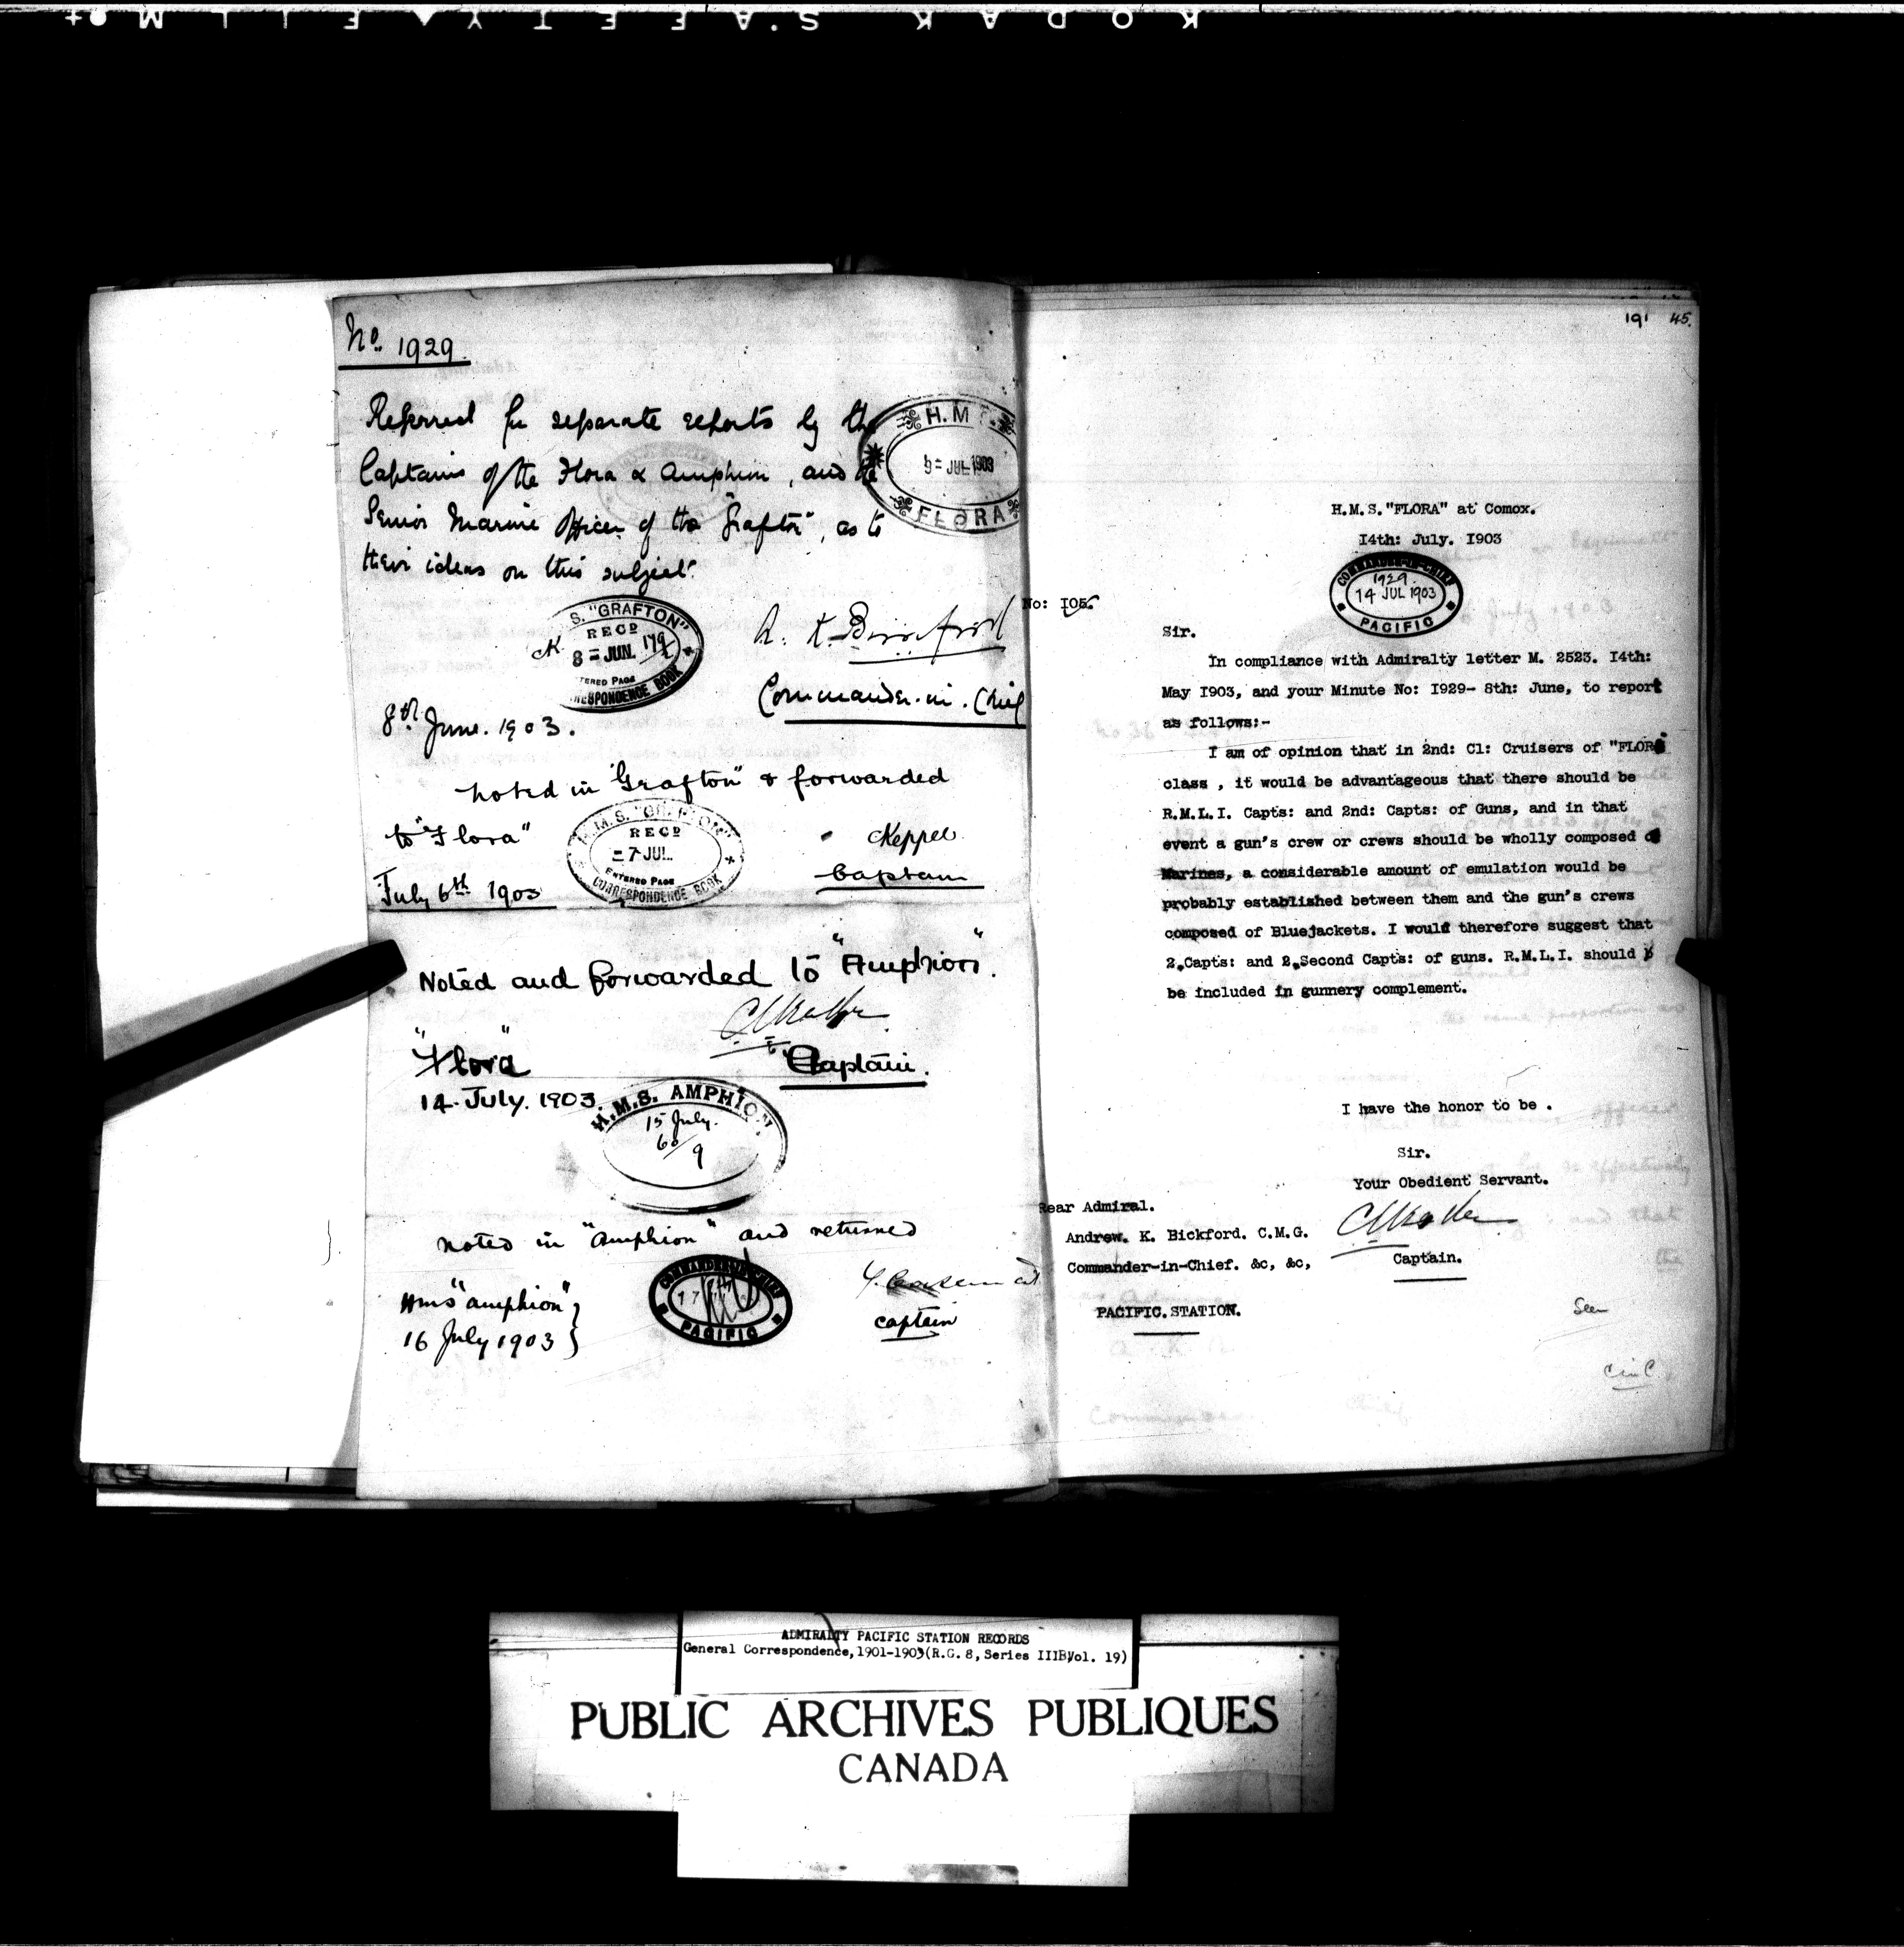 KODAK SAFETY FILM
No. 1929.
Referred for separate reports by the
Captains of the Flora & Amphion, and the
Senior Marine Officer of the "Grafton", as to
their ideas on this subject.
H.M.S.
9 = JUL 1903
FLORA
S. "GRAFTON"
RECD
8 = JUN.
TERED PAGE
RESPONDENCE BOOK
A. K. Bickford
Commander.in.Chief
8th June. 1903.
Noted in "Grafton" & forwarded
to "Flora"
H.M.S. "GRAFTON"
RECD
= 7 JUL
ENTERED PAGE
CORRESPONDENCE BOOK
CKeppel
Captain
July 6th 1903
Noted and forwarded to "Amphion".
"Flora"
Captain.
14. July. 1903
H.M.S. AMPHION
15 July.
60/9
Noted in "Amphion" and returned
HMS "Amphion"
16 July 1903
COMMANDER-IN-CHIEF
17
PACIFIC
Captain
191 45.
H.M.S. "FLORA" at Comox.
I4th: July. I903
COMMANDER-IN-CHIEF
1929.
14 JUL 1903
PACIFIC
No: I05.
Sir.
In compliance with Admiralty letter M. 2523. I4th:
May I903, and your Minute No: I929- 8th: June, to report
as follows:-
I am of opinion that in 2nd: Cl: Cruisers of "FLORA
class , it would be advantageous that there should be
R.M.L.I. Capts: and 2nd: Capts: of Guns, and in that
event a gun's crew or crews should be wholly composed of
Marines, a considerable amount of emulation would be
probably established between them and the gun's crews
composed of Bluejackets. I would therefore suggest that
2.Capts: and 2.Second Capts: of guns. R.M.L.I. should b
be included in gunnery complement.
I have the honor to be .
Sir.
Your Obedient Servant.
Captain.
Rear Admiral.
Andrew. K. Bickford. C.M.G.
Commander-in-Chief. &c, &c,
PACIFIC.STATION.
Seen
C in C
ADMIRALTY PACIFIC STATION RECORDS
General Correspondence,1901-1903(R.G. 8, Series IIIB,Vol. 19)
PUBLIC ARCHIVES PUBLIQUES
CANADA